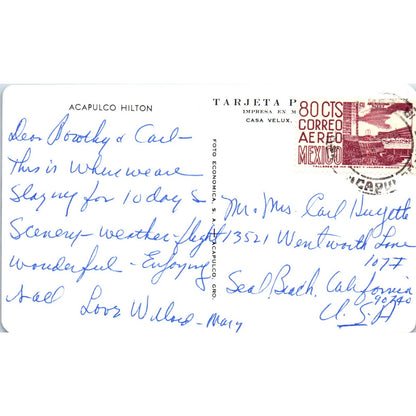 ACAPULCO HILTON
TARJETA P
IMPRESA EN M
CASA VELUX,
80 CTS
CORREO
AEREO
MEXICO
FOTO ECONOMICA, S. A. ACAPULCO, GRO.
Dear Dorothy & Carl -
This is where we are
Staying for 10 days
Scenery - weather - flight
wonderful - Enjoying
all
Love Willard - Mary
Mr. Mrs. Carl
13521 Wentworth Lane
107 I
Seal Beach, California
90740
U.S.A